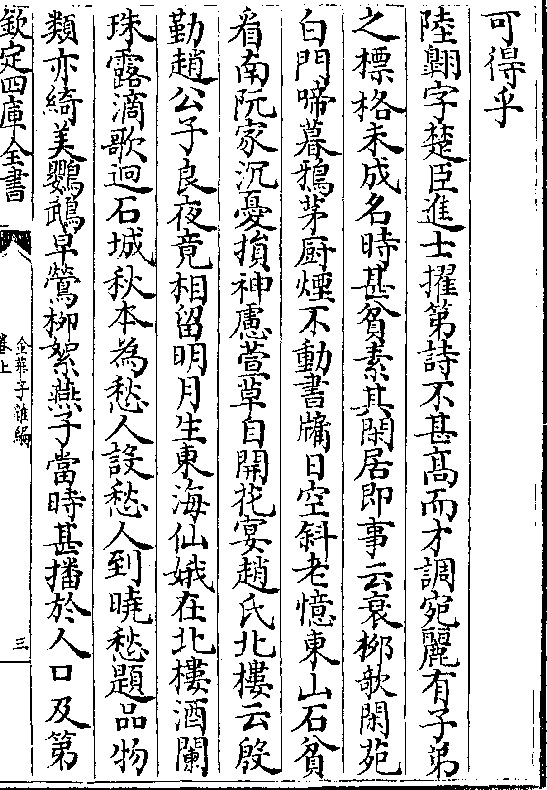 可得乎
陸翺字楚臣進士擢第詩不甚高而才調宛麗有子弟
之標格未成名時甚貧素其閑居即事云衰栁欹閑苑
白門啼暮鵶茅厨煙不動書牖日空斜老憶東山石貧
看南阮家沉憂損神慮萱草自開花宴趙氏北樓云殷
勤趙公子良夜竟相留明月生東海仙娥在北樓酒闌
珠露滴歌迥石城秋本為愁人設愁人到曉愁題品物
類亦綺美鸚鵡早鶯栁絮燕子當時甚播於人口及第
欽定四庫全書
金華子雜編
卷上
三